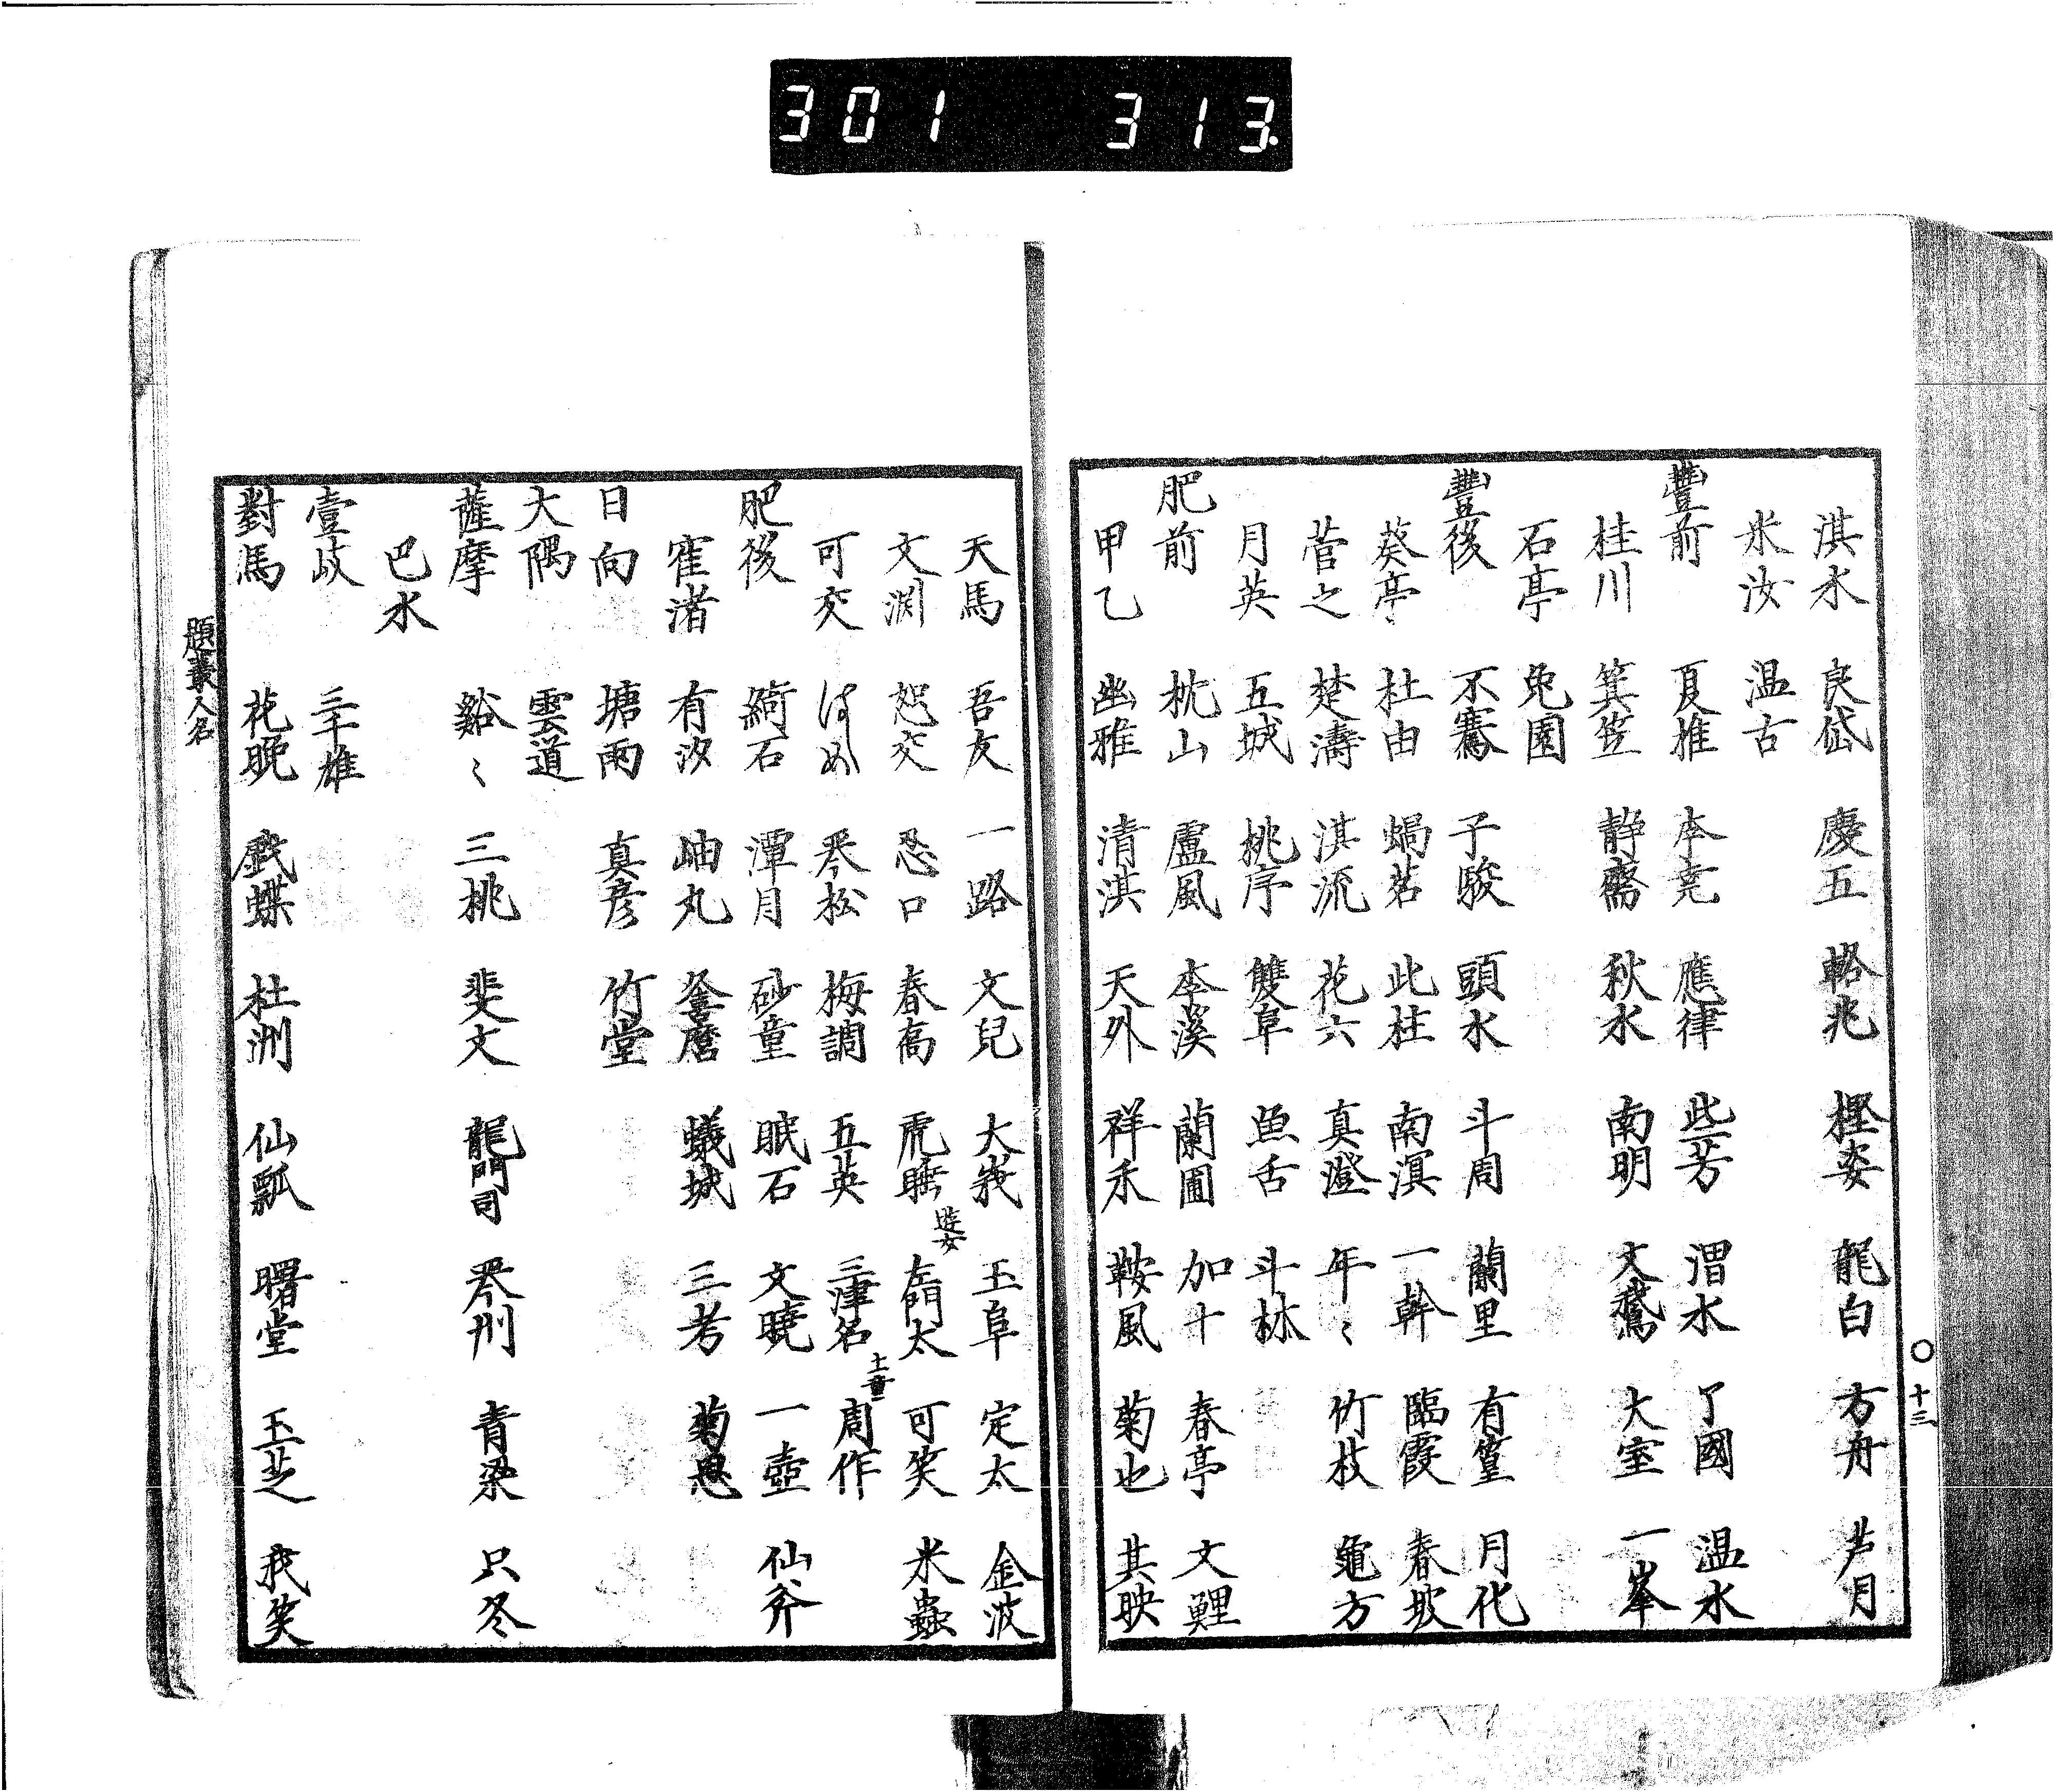 301 313.
淇水 良岱 慶五 輅兆 檉姿 龍白 方舟 芦月
米汝 温古
豐前 夏推 本尭 應律 些芳 渭水 了國 温水
桂川 箕笠 静齋 秋水 南明 文鵞 大室 一峯
石亭 兔園
豐後 不騫 子駿 頭水 斗周 蘭里 有篁 月化
葵亭 杜由 蝸茗 此柱 南溟 一幹 臨霞 春坡
菅之 楚濤 淇流 花六 真澄 年〻 竹枝 龜方
月英 五城 桃序 雙阜 魚舌 斗林
肥前 枕山 盧風 李溪 蘭圃 加十 春亭 文鯉
甲乙 幽雅 清淇 天外 祥禾 鞍風 菊也 其映
〇十三
天馬 吾友 一路 文兒 大峩 玉阜 定太 金波
文渊 恕交 忍口 春高 虎睡 遊女 左門太 可笑 米蟲
可交 はめ 琴松 梅調 五英 三津名 上童 周作
肥後 綺石 潭月 砂童 眠石 文曉 一壺 仙斧
寉渚 有汝 岫丸 釜麿 蟻城 三考 菊思
日向 塘雨 真彦 竹堂
大隅 雲道
薩摩 谿〻 三桃 斐文 龍門司 琴州 青梁 只冬
巴水
壹岐 三千雄
對馬 花晩 戯蝶 杜洲 仙瓢 曙堂 玉芝 我笑
題叢人名